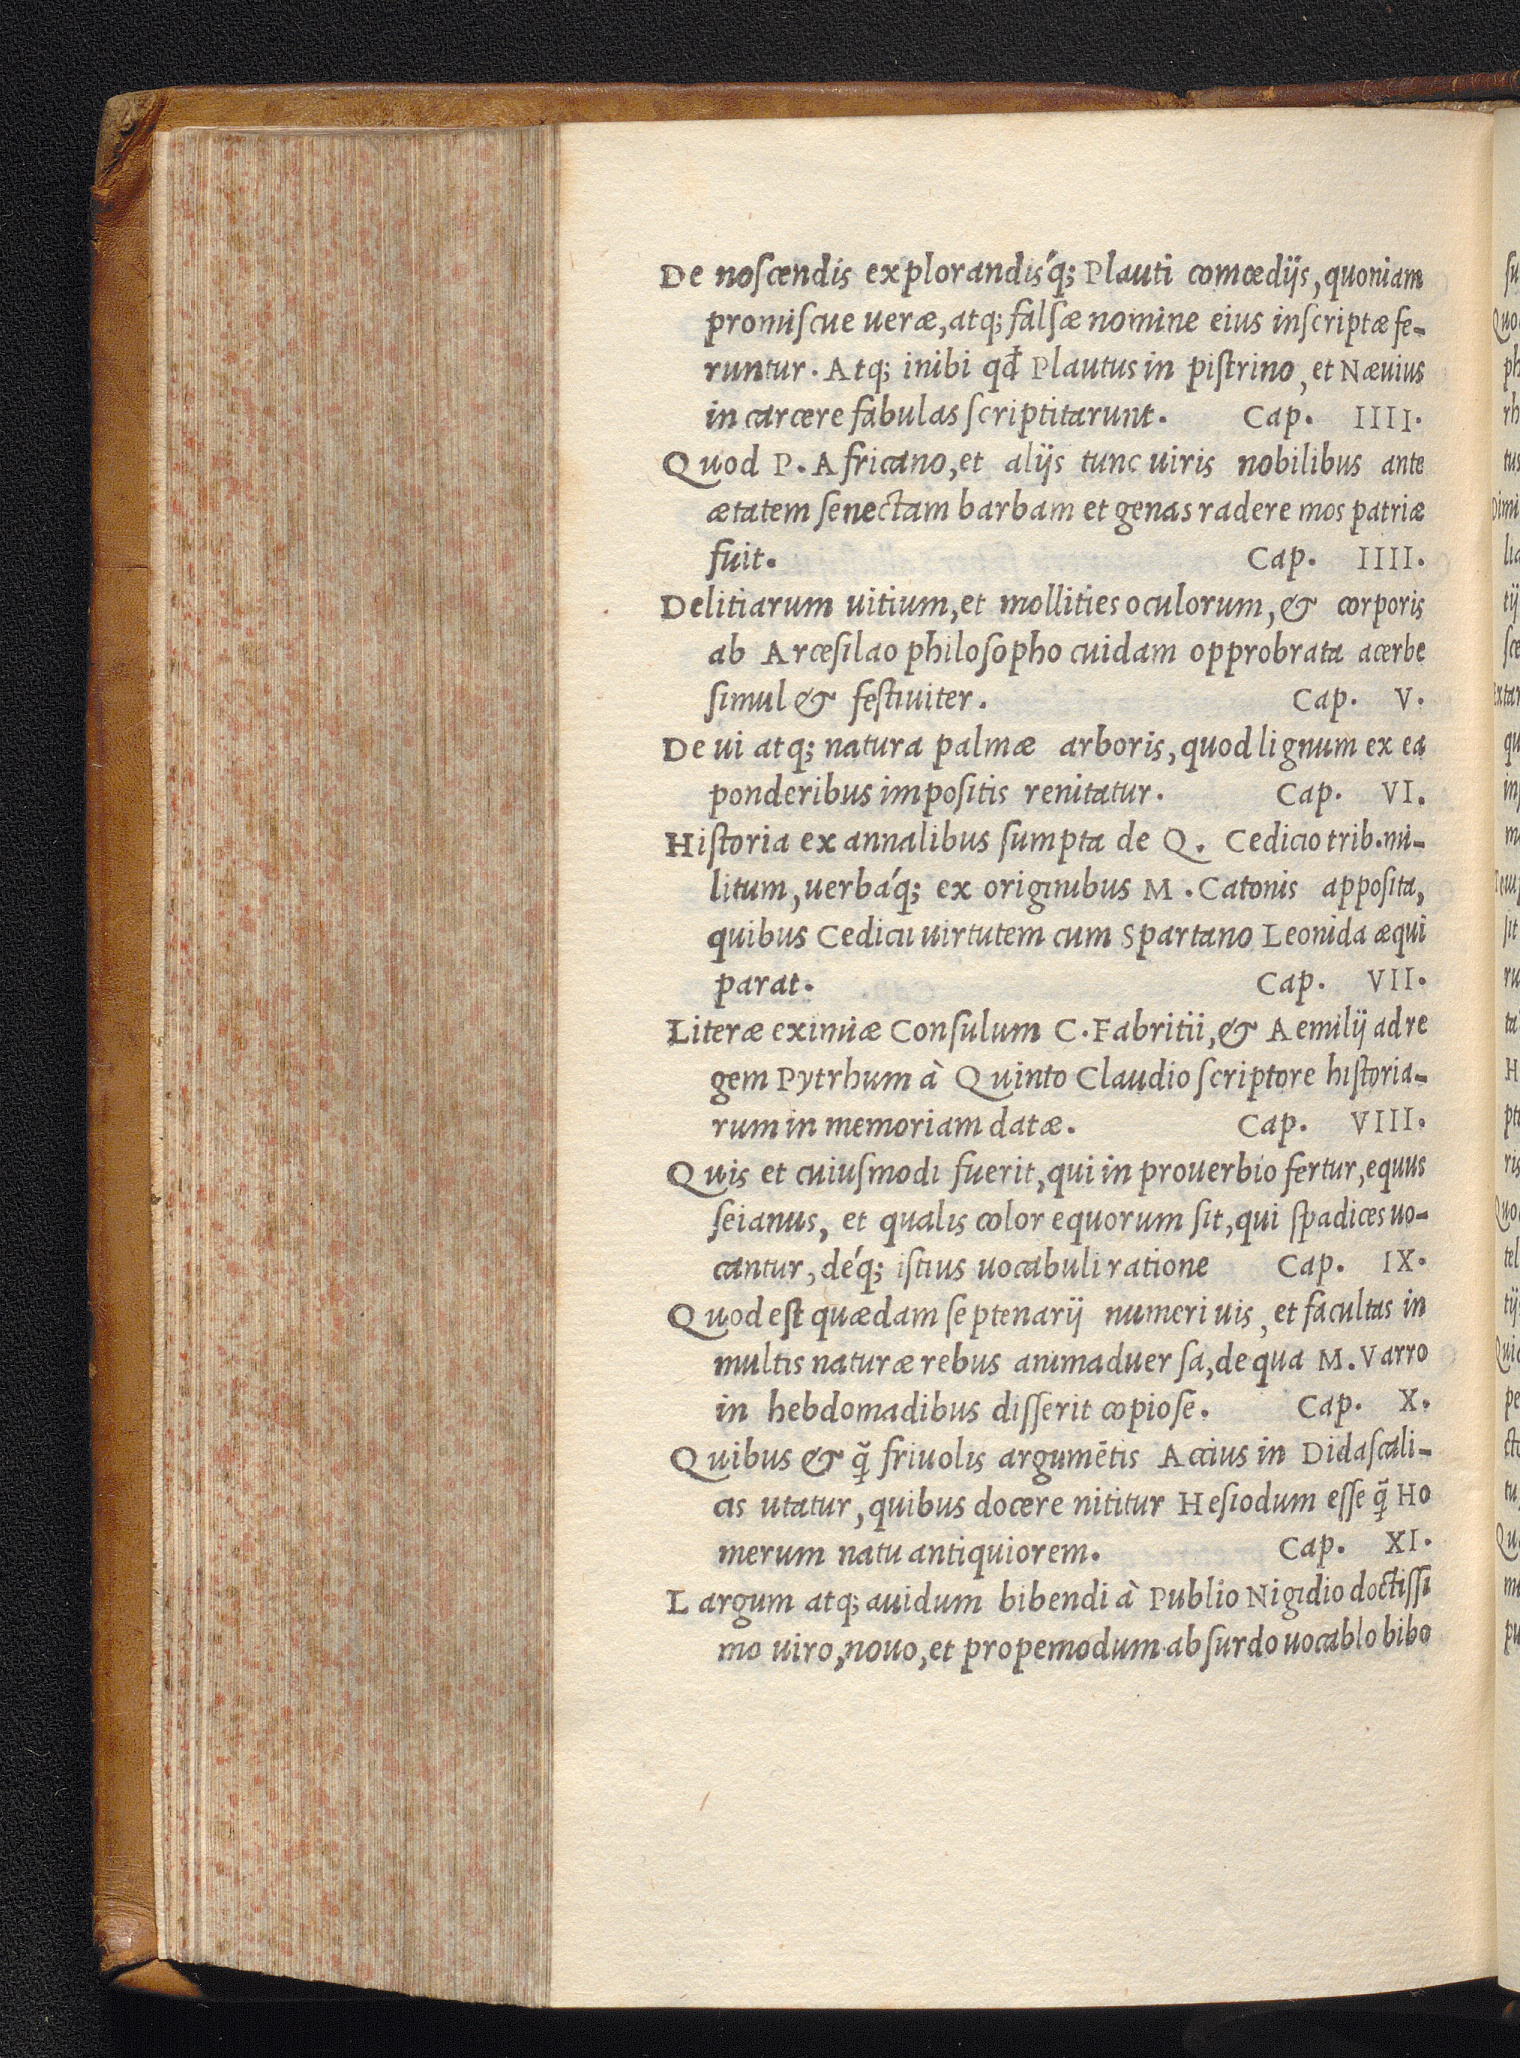 De noſcendis explorandis'q; Plauti comœdijs, quoniam
promiſcue ueræ, atq; falſæ nomine eius inſcriptæ fe-
runtur. Atq; inibi qđ Plautus in piſtrino, et Næuius
in carcere fabulas ſcriptitarunt. Cap. IIII.
Quod P. Africano, et alijs tunc uiris nobilibus ante
ætatem ſenectam barbam et genas radere mos patriæ
fuit. Cap. IIII.
Delitiarum uitium, et mollities oculorum, & corporis
ab Arceſilao philoſopho cuidam opprobrata acerbe
ſimul & feſtiuiter. Cap. V.
De ui atq; natura palmæ arboris, quod lignum ex ea
ponderibus impoſitis renitatur. Cap. VI.
Hiſtoria ex annalibus ſumpta de Q. Cedicio trib. mi-
litum, uerbá'q; ex originibus M. Catonis appoſita,
quibus Cedicii uirtutem cum Spartano Leonida æqui
parat. Cap. VII.
Literæ eximiæ Conſulum C. Fabritii, & Aemilij ad re
gem Pytrhum à Quinto Claudio ſcriptore hiſtoria-
rum in memoriam datæ. Cap. VIII.
Quis et cuiuſmodi fuerit, qui in prouerbio fertur, equus
ſeianus, et qualis color equorum ſit, qui ſpadices uo-
cantur, dé'q; iſtius uocabuli ratione Cap. IX.
Quod eſt quædam ſeptenarij numeri uis, et facultas in
multis naturæ rebus animaduerſa, de qua M. Varro
in hebdomadibus diſſerit copioſe. Cap. X.
Quibus & q̃ friuolis argumētis Accius in Didaſcali-
cis utatur, quibus docere nititur Heſiodum eſſe q̃ Ho
merum natu antiquiorem. Cap. XI.
Largum atq; auidum bibendi à Publio Nigidio doctiſſi
mo uiro, nouo, et propemodum abſurdo uocablo bibo